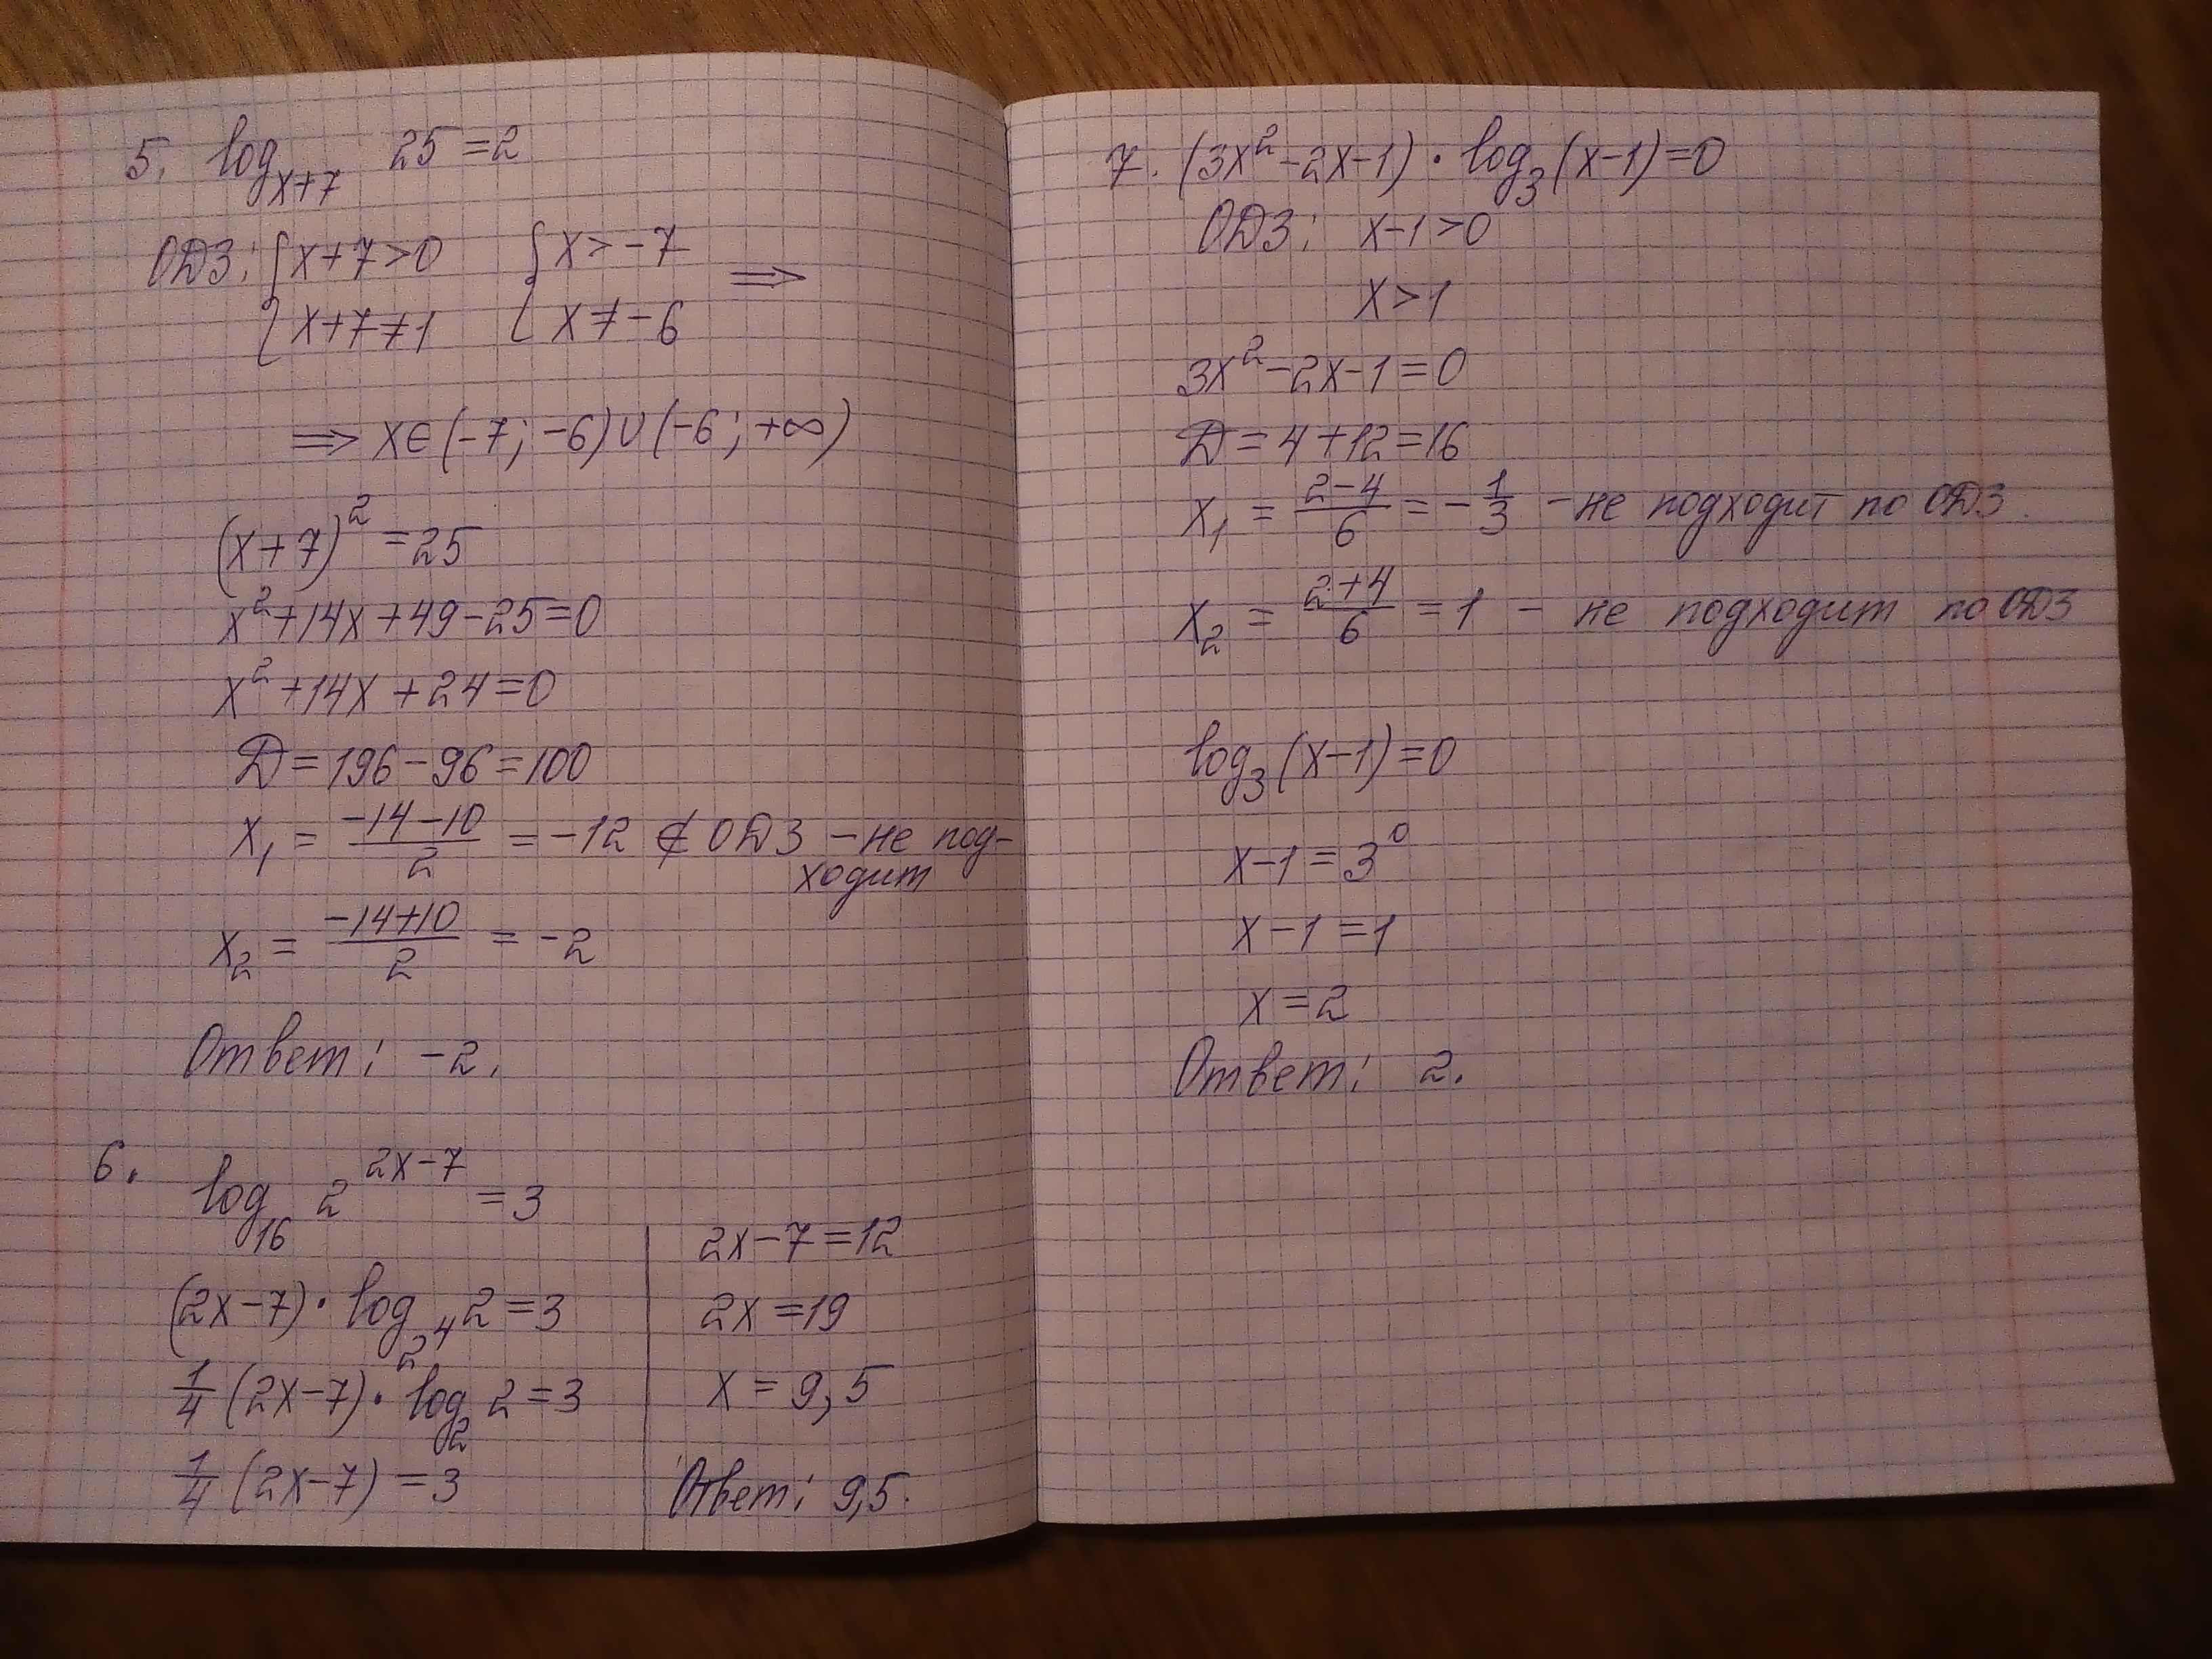 5. log_{x+7} 25 = 2
ОДЗ: { x+7>0 { x>-7 ⟹
{ x+7≠1 { x≠-6
⟹ x∈(-7; -6)∪(-6; +∞)
(x+7)² = 25
x²+14x+49-25=0
x²+14x+24=0
D=196-96=100
x₁ = \frac{-14-10}{2} = -12 ∉ ОДЗ - не под-
ходит
x₂ = \frac{-14+10}{2} = -2
Ответ: -2.
6. log_{16} 2^{2x-7} = 3
(2x-7)·log_{2^4} 2 = 3
\frac{1}{4} (2x-7)·log_2 2 = 3
\frac{1}{4} (2x-7) = 3
2x-7=12
2x=19
x = 9,5
Ответ: 9,5.
7. (3x²-2x-1)·log_3(x-1)=0
ОДЗ: x-1>0
x>1
3x²-2x-1=0
D=4+12=16
x₁ = \frac{2-4}{6} = -\frac{1}{3} - не подходит по ОДЗ.
x₂ = \frac{2+4}{6} = 1 - не подходит по ОДЗ
log_3(x-1)=0
x-1=3⁰
x-1=1
x=2
Ответ: 2.